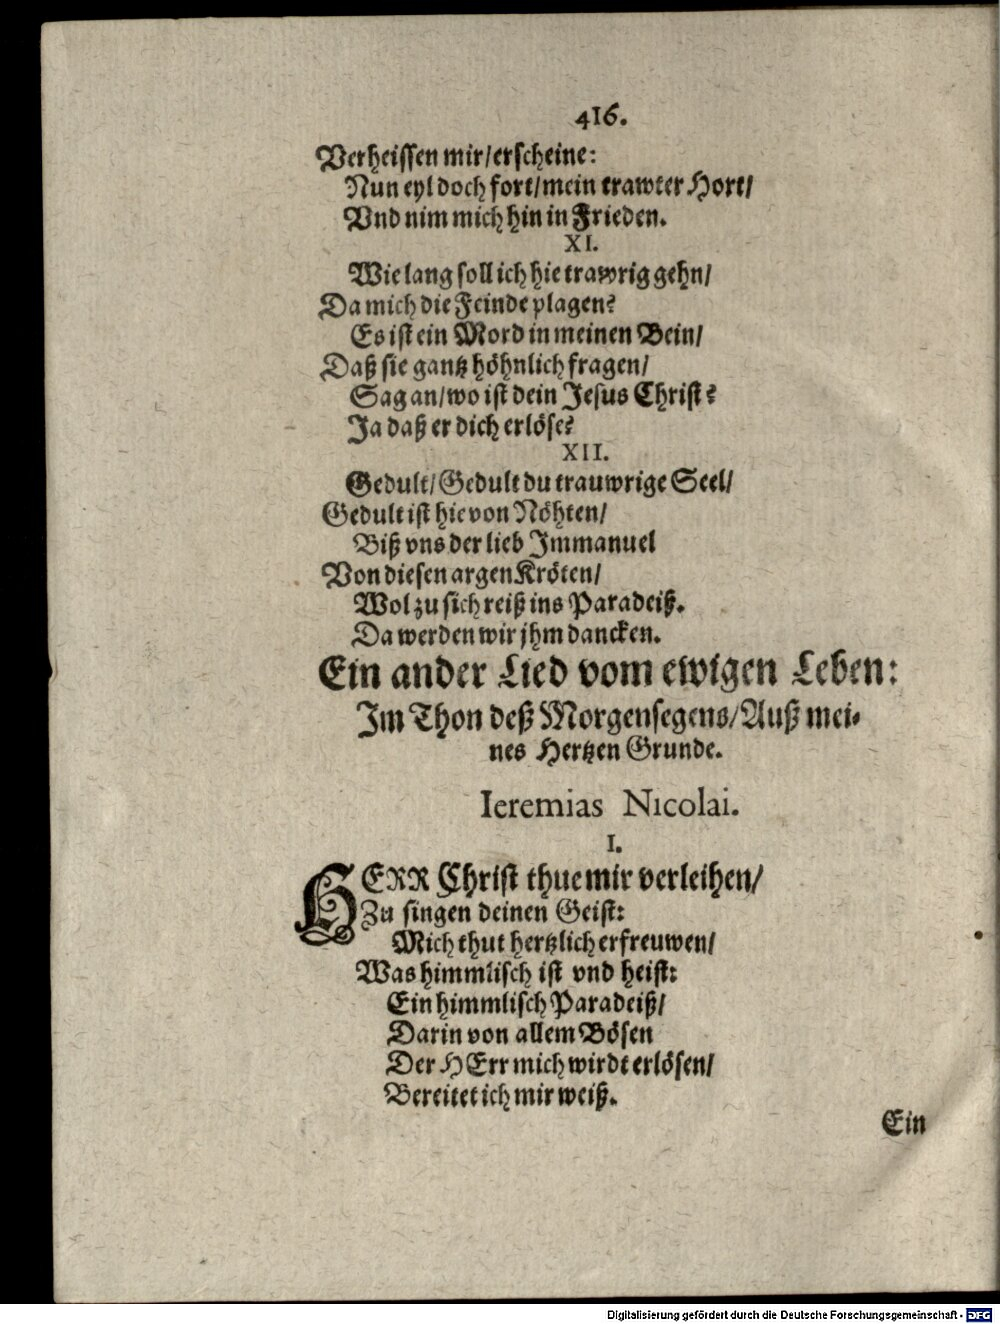 416.
Verheissen mir/erscheine:
Nun eyl doch fort/mein trawter Hort/
Vnd nim mich hin in Frieden.
XI.
Wie lang soll ich hie trawrig gehn/
Da mich die Feinde plagen?
Es ist ein Mord in meinen Bein/
Daß sie gantz höhnlich fragen/
Sag an/wo ist dein Jesus Christ?
Ja daß er dich erlöse?
XII.
Gedult/Gedult du trauwrige Seel/
Gedult ist hie von Nöhten/
Biß vns der lieb Immanuel
Von diesen argen Kröten/
Wol zu sich reiß ins Paradeiß.
Da werden wir jhm dancken.
Ein ander Lied vom ewigen Leben:
Im Thon deß Morgensegens/Auß mei-
nes Hertzen Grunde.
Ieremias Nicolai.
I.
HERR Christ thue mir verleihen/
Zu singen deinen Geist:
Mich thut hertzlich erfreuwen/
Was himmlisch ist vnd heist:
Ein himmlisch Paradeiß/
Darin von allem Bösen
Der HErr mich wirdt erlösen/
Bereitet ich mir weiß.
Ein
Digitalisierung gefördert durch die Deutsche Forschungsgemeinschaft - DFG